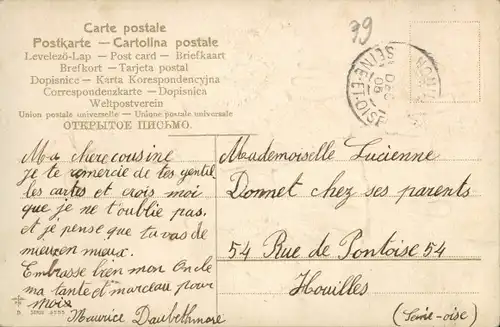 Carte postale
Postkarte — Cartolina postale
Levelező-Lap — Post card — Briefkaart
Brefkort — Tarjeta postal
Dopisnice — Karta Korespondencyjna
Correspondenzkarte — Dopisnica
Weltpostverein
Union postale universelle — Unione postale universale
ОТКРЫТОЕ ПИСЬМО.
39
DEC
06
SEINE-ET-OISE
Ma chere cousine
je te remercie de tes gentil
les cartes et crois moi
que je ne t'oublie pas.
et je pense que tu vas de
mieux en mieux.
Embrasse bien mon Oncle
ma tante et marceau pour
moi
Maurice
Mademoiselle Lucienne
Donnet chez ses parents
54 Rue de Pontoise 54
Houilles
(Seine-oise)